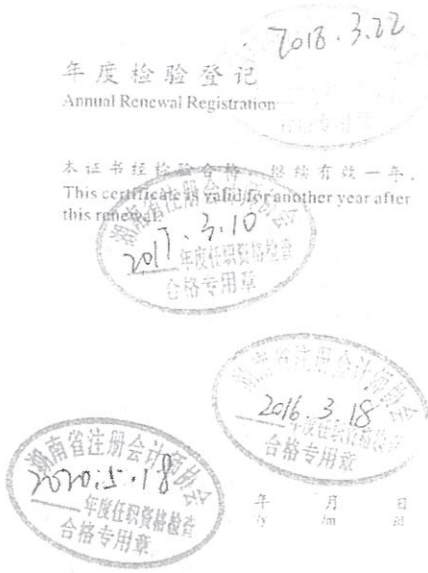 2018.3.22
年度检验登记
Annual Renewal Registration
合格专用章
本证书经检验合格，继续有效一年。
This certificate is valid for another year after
this renewal.
湖南省注册会计师协会
2017.3.10
年度任职资格检查
合格专用章
湖南省注册会计师协会
2016.3.18
年度任职资格检查
合格专用章
湖南省注册会计师协会
2020.5.18
年度任职资格检查
合格专用章
年 月 日
/y /m /d